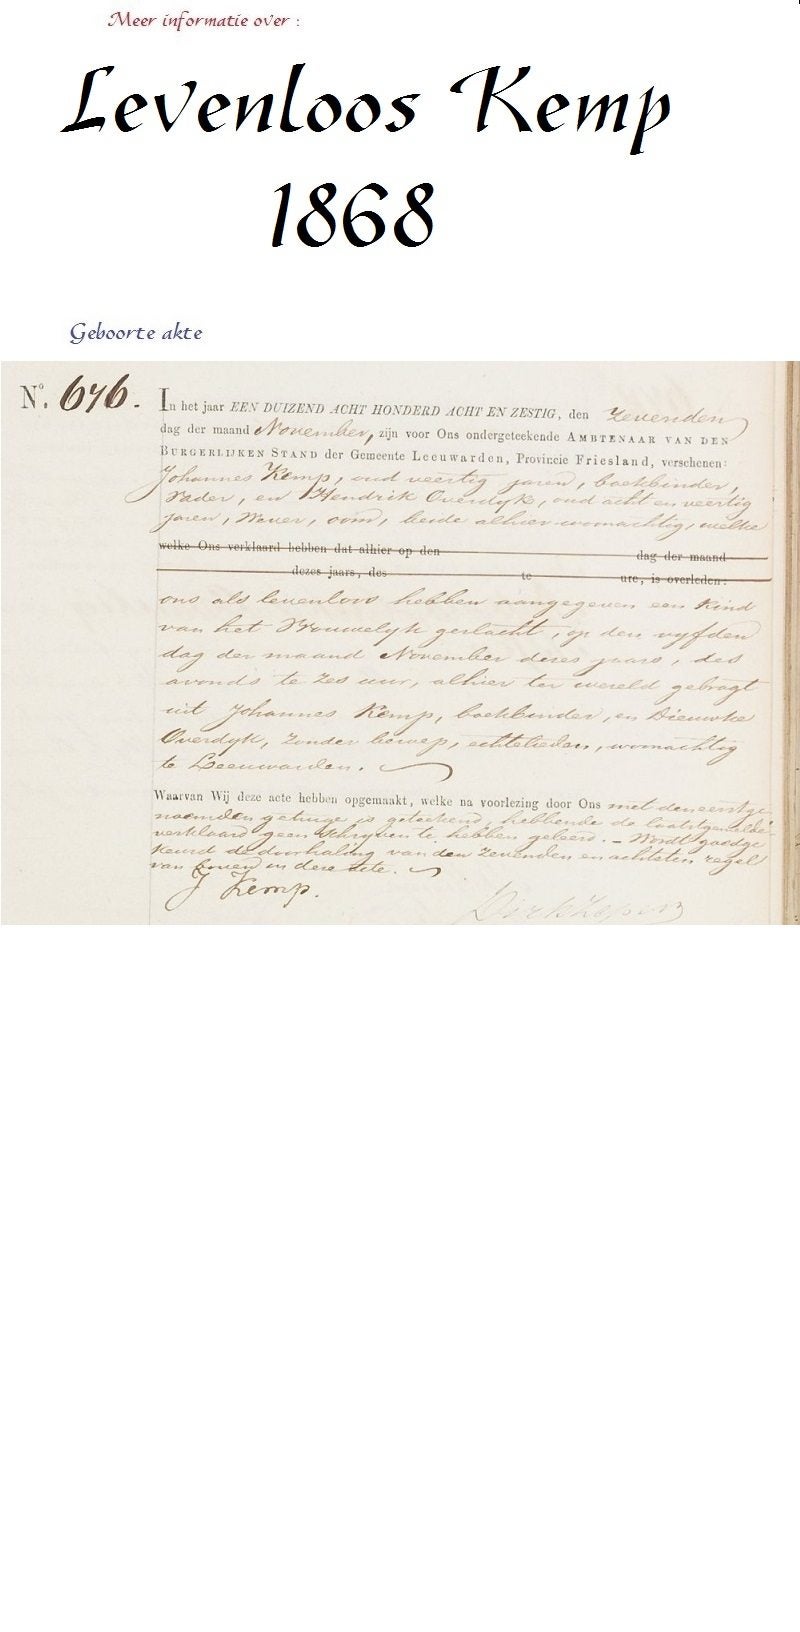 Meer informatie over :
Levenloos Kemp
1868
Geboorte akte
No. 676. In het jaar EEN DUIZEND ACHT HONDERD ACHT EN ZESTIG, den zevenden
dag der maand November, zijn voor Ons ondergeteekende AMBTENAAR VAN DEN
BURGERLIJKEN STAND der Gemeente Leeuwarden, Provincie Friesland, verschenen:
Johannes Kemp, oud veertig jaren, boekbinder,
Vader, en Hendrik Overdijk, oud acht en veertig
jaren, Wever, oom, beide alhier woonachtig, welke
welke Ons verklaard hebben dat alhier op den dag der maand
dezes jaars, des te ure, is overleden:
ons als levenloos hebben aangegeven een Kind
van het Vrouwelijk geslacht, op den vijfden
dag der maand November dezes jaars, des
avonds te zes uur, alhier ter wereld gebragt
uit Johannes Kemp, boekbinder, en Dieuwke
Overdijk, zonder beroep, echtelieden, woonachtig
te Leeuwarden.
Waarvan Wij deze acte hebben opgemaakt, welke na voorlezing door Ons met den eerstge
noemden getuige is geteekend, hebbende de laatstgemelde
verklaard geen schrijven te hebben geleerd. – Wordt goedge
keurd de doorhaling van den zevenden en achtsten regel
van boven in deze acte.
J Kemp.